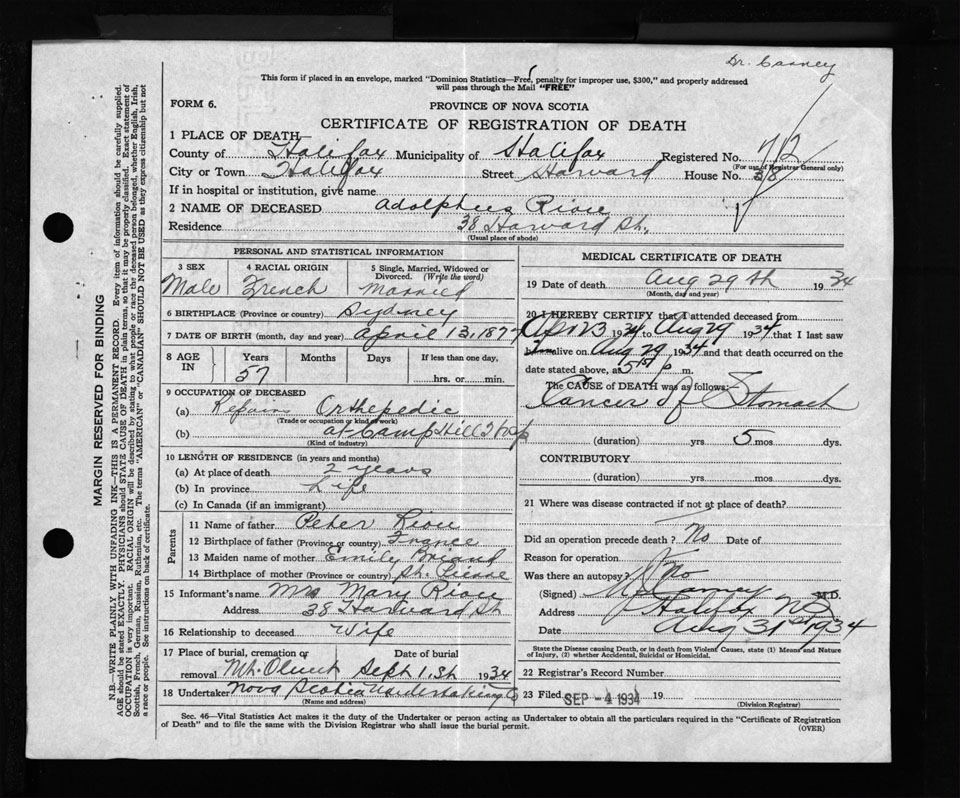 Dr. Carney
This form if placed in an envelope, marked "Dominion Statistics—Free, penalty for improper use, $300," and properly addressed
will pass through the Mail "FREE"
FORM 6.
PROVINCE OF NOVA SCOTIA
CERTIFICATE OF REGISTRATION OF DEATH
1 PLACE OF DEATH—
County of Halifax Municipality of Halifax Registered No.
(For use of Registrar General only)
City or Town Halifax Street Harvard House No. 38
If in hospital or institution, give name
2 NAME OF DECEASED Adolpheus Riou
Residence 38 Harvard St.
(Usual place of abode)
PERSONAL AND STATISTICAL INFORMATION
3 SEX 4 RACIAL ORIGIN 5 Single, Married, Widowed or Divorced. (Write the word)
Male French Married
6 BIRTHPLACE (Province or country) Sydney
7 DATE OF BIRTH (month, day and year) April 13, 1877
8 AGE IN Years Months Days If less than one day,
57 hrs. or min.
9 OCCUPATION OF DECEASED
(a) Repairs Orthepedic
(Trade or occupation or kind of work)
(b) at Camp Hill Hosp
(Kind of industry)
10 LENGTH OF RESIDENCE (in years and months)
(a) At place of death 2 years
(b) In province Life
(c) In Canada (if an immigrant)
Parents
11 Name of father Peter Riou
12 Birthplace of father (Province or country) France
13 Maiden name of mother Emily Briand
14 Birthplace of mother (Province or country) St. Pierre
15 Informant's name Mrs Mary Riou
Address 38 Harvard St
16 Relationship to deceased Wife
17 Place of burial, cremation or removal Date of burial
Mt. Olivet Sept 1st 1934
18 Undertaker Nova Scotia Undertaking Co
(Name and address)
MEDICAL CERTIFICATE OF DEATH
19 Date of death Aug 29th 1934
(Month, day and year)
20 I HEREBY CERTIFY that I attended deceased from
Apr 23 1934 to Aug 29 1934 that I last saw
him alive on Aug 29 1934 and that death occurred on the
date stated above, at p m.
The CAUSE of DEATH was as follows:
Cancer of Stomach
(duration) yrs 5 mos. dys.
CONTRIBUTORY
(duration) yrs. mos. dys.
21 Where was disease contracted if not at place of death?
Did an operation precede death? No Date of
Reason for operation
Was there an autopsy? No
(Signed) Carney M.D.
Address Halifax NS
Date Aug 31st 1934
State the Disease causing Death, or in death from Violent Causes, state (1) Means and Nature
of Injury, (2) whether Accidental, Suicidal or Homicidal.
22 Registrar's Record Number
23 Filed SEP - 4 1934 19
(Division Registrar)
Sec. 46—Vital Statistics Act makes it the duty of the Undertaker or person acting as Undertaker to obtain all the particulars required in the "Certificate of Registration
of Death" and to file the same with the Division Registrar who shall issue the burial permit.
(OVER)
MARGIN RESERVED FOR BINDING
N.B.—WRITE PLAINLY WITH UNFADING INK—THIS IS A PERMANENT RECORD. Every item of information should be carefully supplied.
AGE should be stated EXACTLY. PHYSICIANS should STATE CAUSE OF DEATH in plain terms, so that it may be properly classified. Exact statement of
OCCUPATION is very important. RACIAL ORIGIN will be described by stating to what people or race the deceased person belonged, whether English, Irish,
Scottish, French, German, Russian, Ruthenian, etc. The terms "AMERICAN" or "CANADIAN" SHOULD NOT BE USED as they express citizenship but not
a race or people. See instructions on back of certificate.